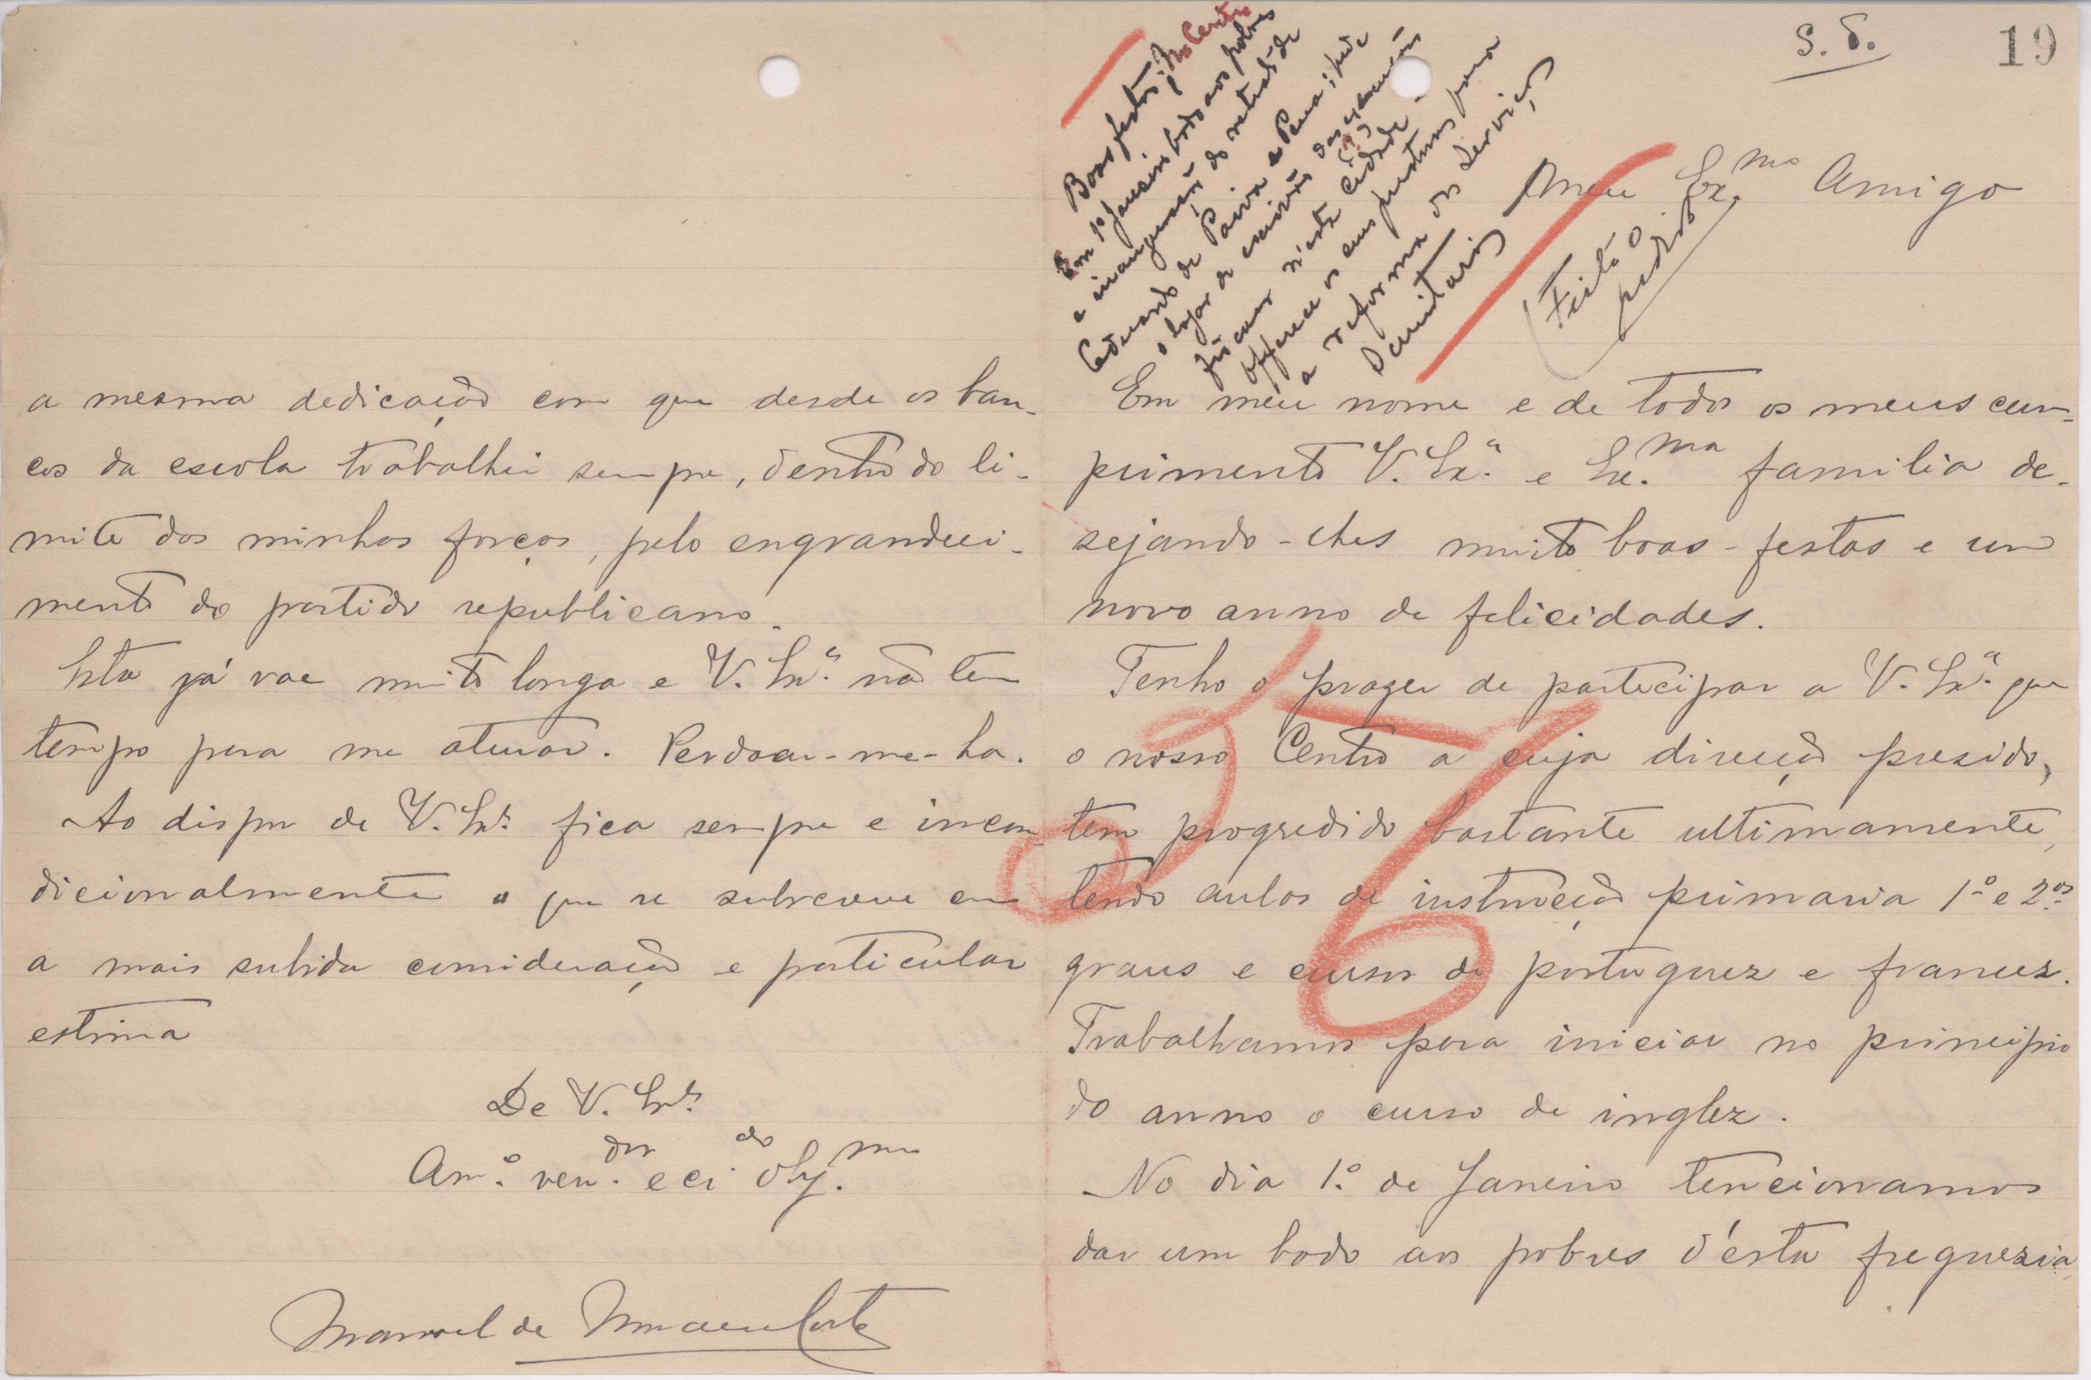 S. d.
19
No Centro
Boas festas;
Em 1º Janeiro bodo aos pobres
e inauguração do retrato de
de Paiva e Pena; pede
o lugar de escrivão das execuções
fiscaes n'esta cidade -
offerece os seus prestimos para
a reforma dos serviços
Sanitarios
Meu Ex.mo Amigo
Feito o
pedido
Em meu nome e de todos os meus cum-
primento V. Ex.ª e Ex.ma familia de-
sejando-lhes muito boas-festas e um
novo anno de felicidades.
Tenho o prazer de participar a V. Ex.ª que
o nosso Centro a cuja direcção presido,
tem progredido bastante ultimamente,
tendo aulas de instrucção primaria 1º e 2.os
graus e curso de portuguez e francez.
Trabalhamos para iniciar no principio
do anno o curso de inglez.
No dia 1.º de Janeiro tencionamos
dar um bodo aos pobres d'esta freguezia
a mesma dedicação com que desde os ban-
cos da escola trabalhei sempre, dentro do li-
mite das minhas forças, pelo engrandeci-
mento do partido republicano.
Esta já vae muito longa e V. Ex.ª não tem
tempo para me aturar. Perdoar-me-ha.
Ao dispor de V. Ex.ª fica sempre e incon-
dicionalmente o que se subscreve com
a mais subida consideração e particular
estima
De V. Ex.ª
Am.º ven.dor e cr.do obg.mo
Manoel de
576